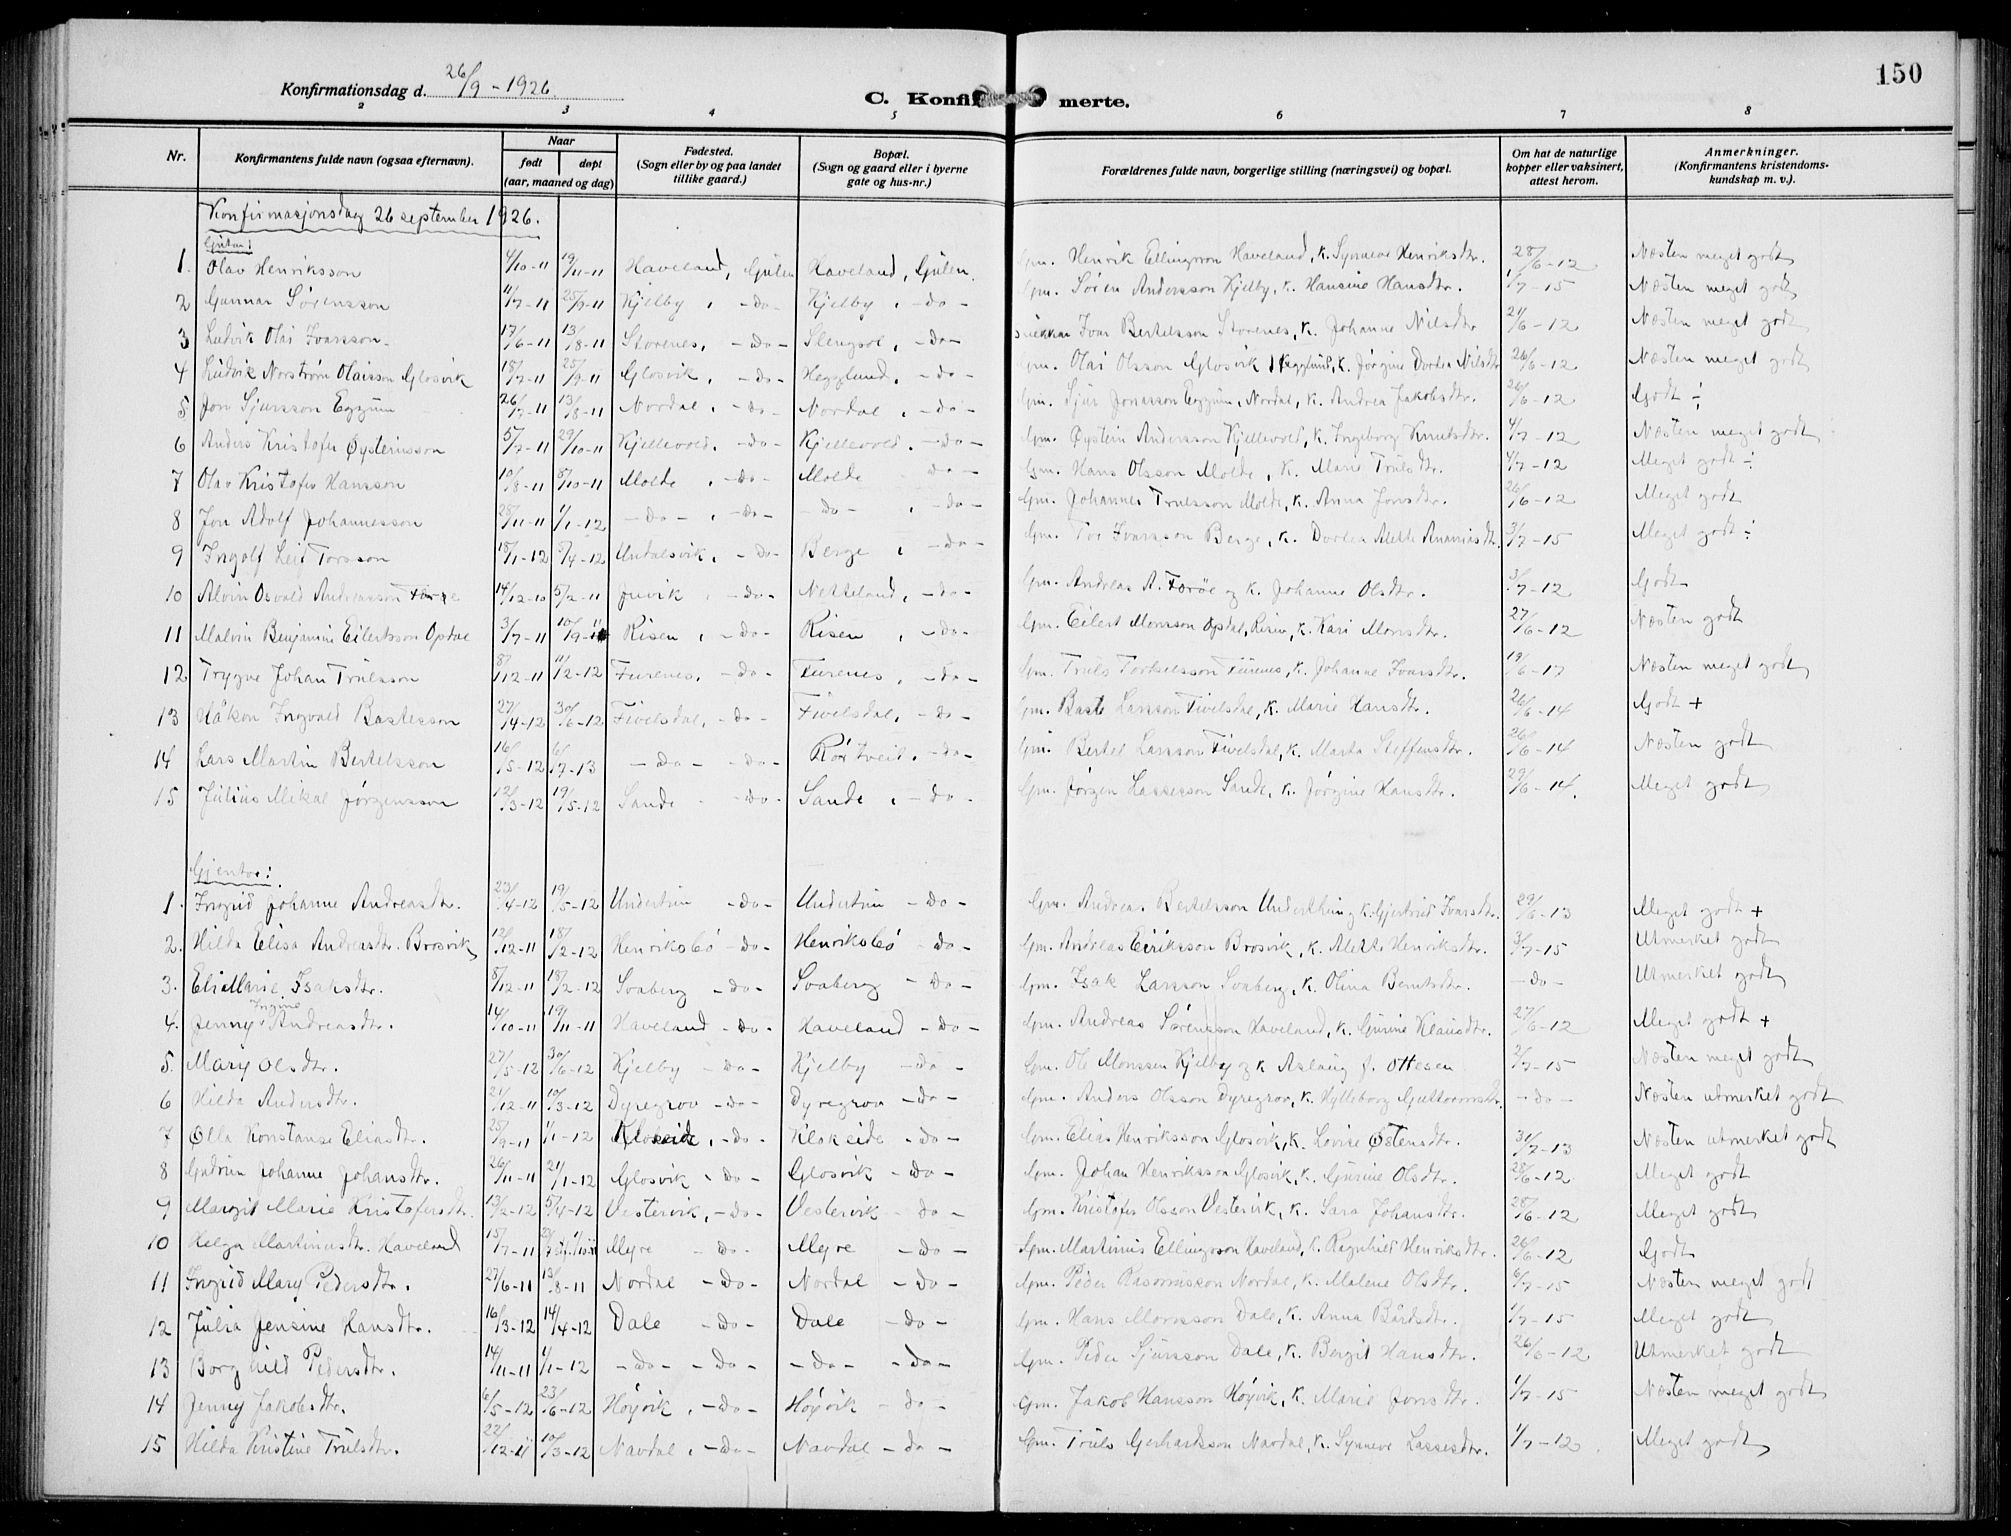 150
Konfirmationsdag d. 26/9 - 1926
C. Konfirmerte.
2 3 4 5 6 7 8
Nr. | Konfirmantens fulde navn (ogsaa efternavn). | Naar født døpt (aar, maaned og dag) | Fødested. (Sogn eller by og paa landet tillike gaard.) | Bopæl. (Sogn og gaard eller i byerne gate og hus-nr.) | Forældrenes fulde navn, borgerlige stilling (næringsvei) og bopæl. | Om hat de naturlige kopper eller vaksinert, attest herom. | Anmerkninger. (Konfirmantens kristendoms-kundskap m. v.).
Konfirmasjonsdag 26 september 1926.
Gutar:
1. Olav Henriksson 4/10-11 19/11-11 Haveland, Gulen Haveland, Gulen. Gm. Henrik Ellingson Haveland, K. Synneve Henriksdtr. 28/6-12 Næsten meget godt
2 Gunnar Sørensson 11/7-11 25/7-11 Kjelby, -do- Kjelby, -do- Gm. Søren Andersson Kjelby, K. Hansine Hansdtr. 1/7-15 Næsten meget godt
3 Ludvik Olai Ivarsson 17/6-11 13/8-11 Storenes, -do- Slengsol, -do- Ivar Bertelsson Storenes, K. Johanne Nilsdtr 21/6-12 Næsten meget godt
4 Ludvik Norstrøm Olaisson Glosvik 18/7-11 25/9-11 Glosvik, -do- Hegglund, -do- Gm. Olai Olsson Glosvik, Hegglund, K. Jørgine Dortea Nilsdtr 26/6-12 Næsten meget godt
5 Jon Sjursson Eggum 26/7-11 13/8-11 Nordal, -do- Nordal, -do- Gm. Sjur Jonasson Eggum, Nordal, K. Andrea Jakobsdtr. 26/6-12 Godt ÷
6 Anders Kristofer Øysteinsson 5/7-11 29/10-11 Kjellevold, -do- Kjellevold, -do- Gm. Øystein Andersson Kjellevold, K. Ingeborg Knutsdtr. 4/7-12 Næsten meget godt
7 Olav Kristofer Hansson 10/8-11 8/10-11 Molde, -do- Molde -do- Gm. Hans Olsson Molde, K. Marie Trulsdtr. 4/7-12 Meget godt ÷
8 Jon Adolf Johannesson 28/11-11 1/1-12 -do-, -do- -do-, -do- Gm. Johannes Trulsson Molde, K. Anna Jonsdtr. 26/6-12 Meget godt
9 Ingolf Leif Torsson 18/1-12 3/4-12 Undalsvik, -do- Berge, -do- Gm. Tor Ivarsson Berge, K. Dortea Alette Ananiasdtr. 3/7-15 Meget godt ÷
10 Alvin Osvald Andreasson Færøe 14/12-10 5/2-11 Juvik, -do- Netteland, -do- Gm. Andreas A. Færøe og K. Johanne Olsdtr. 3/7-12 Godt
11 Malvin Benjamin Eilertsson Opdal 3/7-11 10/9-11 Risen, -do- Risen, -do- Gm. Eilert Monsson Opdal, Risen, K. Kari Monsdtr. 27/6-12 Næsten godt
12 Trygve Johan Trulsson 8/12-11 11/2-12 Furenes, -do- Furenes, -do- Gm. Truls Torkelsson Furenes, K. Johanne Ivarsdtr. 19/6-17 Næsten meget godt
13 Håkon Ingvald Bastesson 27/4-12 30/6-12 Fivelsdal, -do- Fivelsdal, -do- Gm. Baste Larsson Fivelsdal, K. Marie Hansdtr. 26/6-14 Godt +
14 Lars Martin Bertelsson 16/5-12 6/7-13 -do- -do- Rørtveit, -do- Gm. Bertel Larsson Fivelsdal, K. Marta Steffensdtr. 26/6-14 Næsten godt
15 Julius Mikal Jørgensson 12/3-12 19/5-12 Sande -do- Sande, -do- Gm. Jørgen Lassesson Sande, K. Jørgine Hansdtr. 29/6-14. Meget godt
Gjentor:
1. Ingrid Johanne Andreasdtr. 23/4-12 19/5-12 Undertun -do- Undertun -do- Gm. Andreas Bertelsson Undertun og K. Gjertrud Ivarsdtr. 29/6-13 Meget godt +
2. Hilda Elisa Andreasdtr. Brosvik 12/12-11 18/2-12 Henriksbø -do- Henriksbø -do- Gm. Andreas Eiriksson Brosvik, K. Alette Henriksdtr. 3/7-15 Utmerket godt
3. Eli Marie Isaksdtr. 8/12-11 18/2-12 Svaberg -do- Svaberg -do- Gm. Isak Larsson Svaberg, K. Olina Berntsdtr. -do- Utmerket godt
4. Jenny Ingine Andreasdtr. 14/10-11 19/11-11 Haveland -do- Haveland -do- Gm. Andreas Sørensson Haveland, K. Gurine Klausdtr. 27/6-12 Meget godt +
5. Mary Olsdtr. 27/5-12 30/6-12 Kjelby -do- Kjelby -do- Gm. Ole Monssen Kjelby og K Aslaug f. Ottesen 2/7-15 Næsten meget godt
6 Hilda Andersdtr. 21/12-11 10/3-12 Dyregrov -do- Dyregrov -do- Gm. Anders Olsson Dyregrov, K. Hylleborg Guttormsdtr. -do- Næsten utmerket godt
7 Olla Konstanse Eliasdtr. 25/9-11 1/1-12 Klokeide, -do- Klokeide -do- Gm. Elias Henriksson Glosvik, K. Lovise Østensdtr. 31/7-13 Næsten utmerket godt
8 Gudrun Johanne Johansdtr. 26/11-11 21/1-12 Glosvik -do- Glosvik -do- Gm. Johan Henriksson Glosvik, K. Gurine Olsdtr. 28/6-12 Meget godt
9 Margit Marie Kristofersdtr. 13/2-12 5/4-12 Vestervik, -do- Vestervik -do- Gm. Kristofer Olsson Vestervik, K. Sara Johansdtr. 28/6-12 Meget godt
10 Helga Martinusdtr. Haveland 15/7-11 Myre -do- Myre -do- Gm. Martinus Ellingsson Haveland, K. Ragnhild Henriksdtr. 26/6-12 Godt
11 Ingrid Mary Pedersdtr. 27/6-11 13/8-11 Nordal -do- Nordal -do- Gm. Peder Rasmusson Nordal, K. Malene Olsdtr. 6/7-15 Næsten meget godt
12 Julia Jensine Hansdtr. 16/3-12 14/4-12 Dale -do- Dale -do- Gm. Hans Monsson Dale, K. Anna Bårdsdtr. 1/7-15 Meget godt
13 Borghild Pedersdtr. 14/11-11 1/1-12 -do- -do- -do- -do- Gm. Peder Sjursson Dale, K. Bergit Hansdtr. 26/6-12 Utmerket godt
14 Jenny Jakobsdtr. 6/5-12 23/6-12 Høyvik, -do- Høyvik -do- Gm. Jakob Hansson Høyvik, K. Marie Jonsdtr. 1/7-15 Næsten meget godt
15 Hilda Kristine Trulsdtr. 22/12-11 10/3-12 Navdal, -do- Navdal -do- Gm. Truls Gerhardsson Navdal, K. Synneve Lassesdtr. 1/7-12. Meget godt